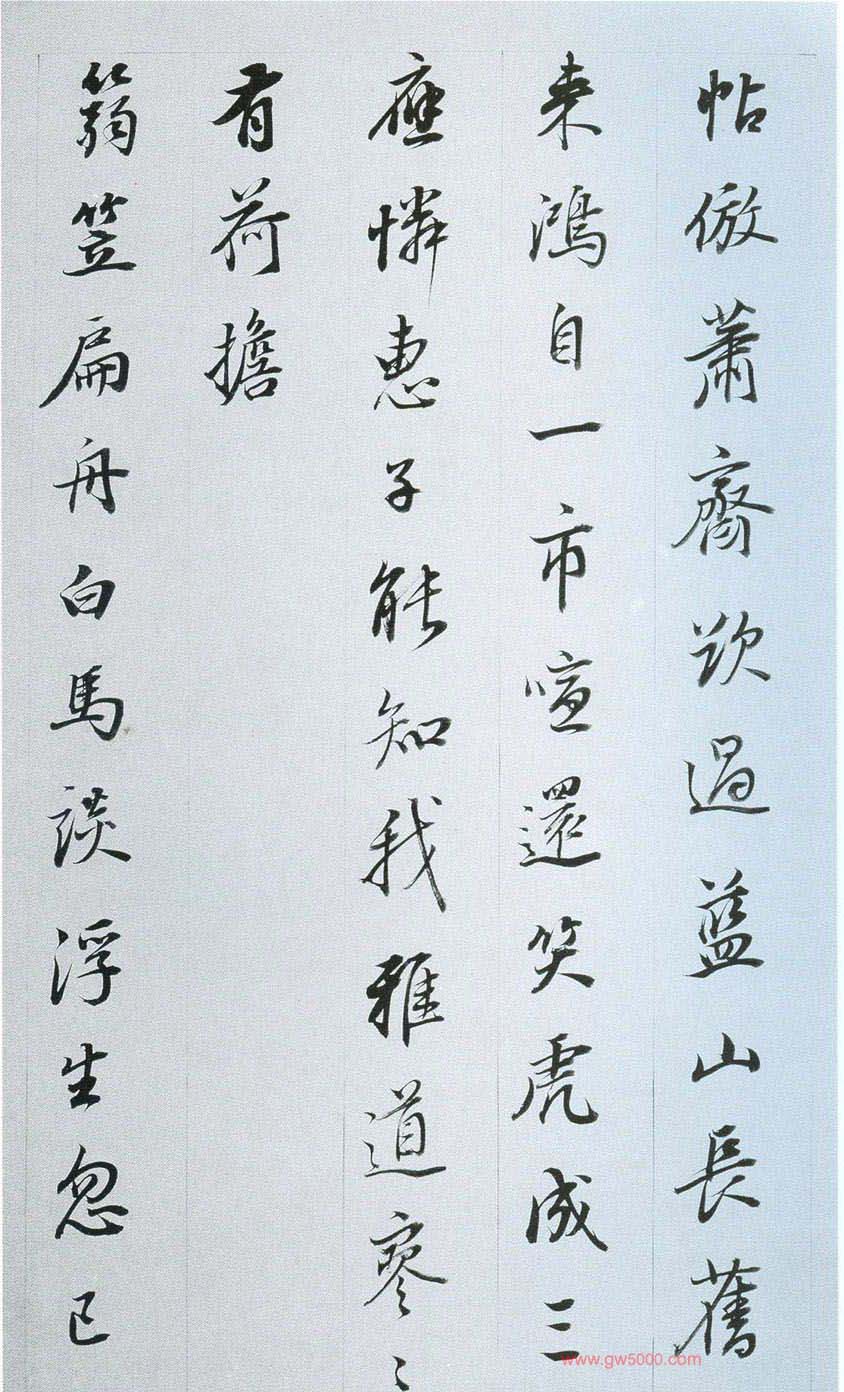 帖倣蕭齋欵過藍山長舊
来鴻自一市喧還笑虎成三
應憐惠子能知我雅道寥〻
有荷擔
篛笠扁舟白馬談浮生忽已
www.gw5000.com